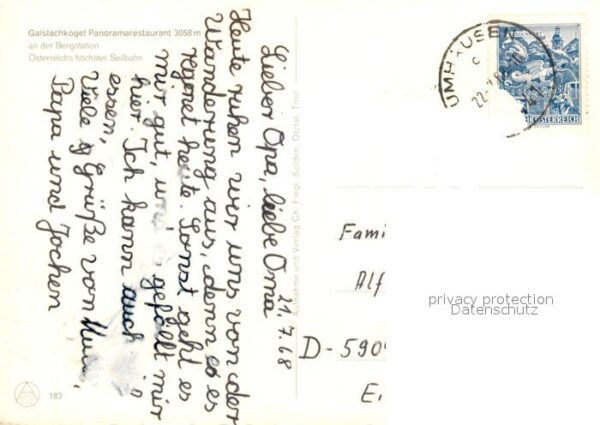 Gaislachkogel Panoramarestaurant 3058 m
an der Bergstation
Österreichs höchster Seilbahn
21.7.68
Lieber Opa, liebe Oma
Heute ruhen wir uns von der
Wanderung aus, denn es
regnet heute. Sonst geht es
mir gut, und es gefällt mir
hier. Ich kann auch
essen, Viele Grüße von
Papa und Jochen
Aufnahme und Verlag Ch. Fiegl, Sölden, Ötztal, Tirol
183
UMHAUSEN
ÖSTERREICH
Fami
Alf
D-590
E
privacy protection
Datenschutz